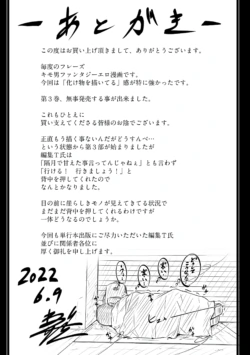 ーあとがきー
この度はお買い上げ頂きまして、ありがとうございます。
毎度のフレーズ
キモ男ファンタジーエロ漫画です。
今回は「化け物を描いてる」感が特に強かったです。
第3巻、無事発売する事が出来ました。
これもひとえに
買い支えてくださる皆様のお陰でございます。
正直もう描く事ないんだがどうすべ…
という状態から第3部が始まりましたが
編集T氏は
「隔月で甘えた事言ってんじゃねぇ」とも言わず
「行ける！　行きましょう！」と
背中を押してくれたので
なんとかなりました。
目の前に崖らしきモノが見えてきてる状況で
まだまだ背中を押してくれるわけですが
一体どうなるのでしょうか。
今回も単行本出版にご尽力いただいた編集T氏
並びに関係者各位に
厚く御礼を申し上げます。
2022
6.9